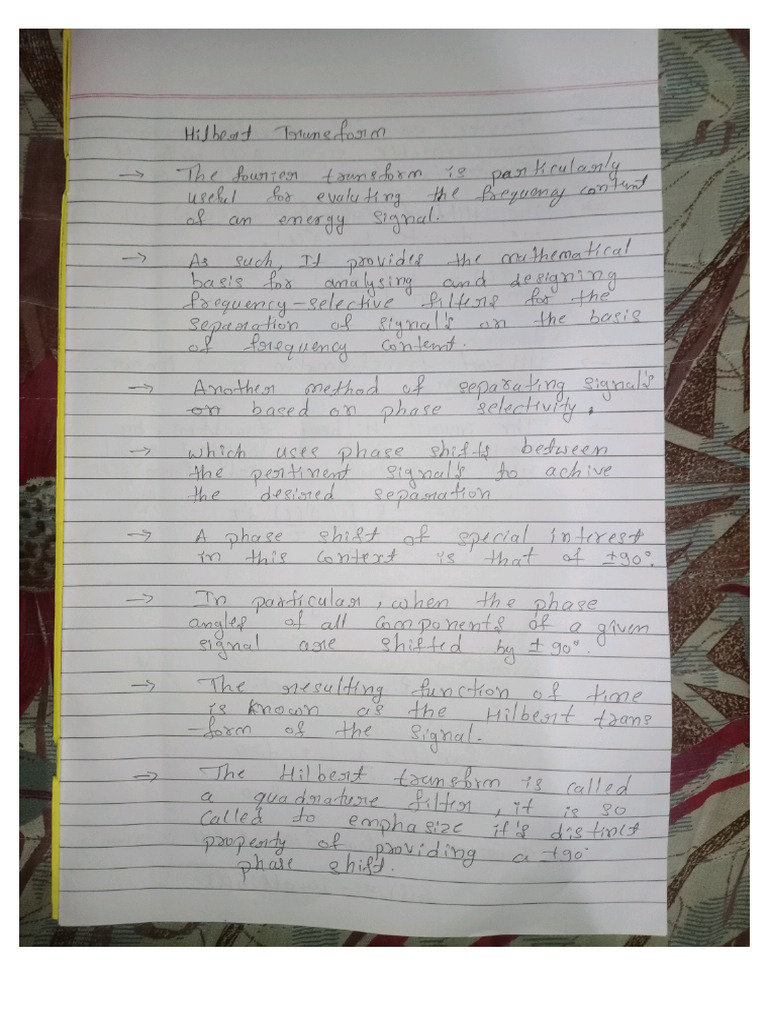 Hilbert Transform
→ The fourier transform is particularly
useful for evaluting the frequency content
of an energy signal.
→ As such, It provides the mathematical
basis for analysing and designing
frequency-selective filters for the
separation of signal's on the basis
of frequency content.
→ Another method of separating signal's
on based on phase selectivity,
→ which uses phase shifts between
the pertinent signal's to achive
the desired separation
→ A phase shift of special interest
in this context is that of ±90°.
→ In particular, when the phase
angles of all components of a given
signal are shifted by ±90°.
→ The resulting function of time
is known as the Hilbert trans
-form of the signal.
→ The Hilbert transform is called
a quadrature filter, it is so
called to emphasize it's distinct
property of providing a ±90°
phase shift.